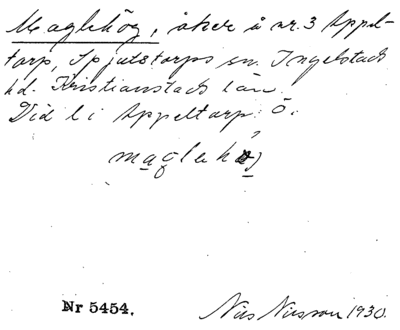 Maglehög, åker å nr. 3 Appel-
torp, Spjutstorps sn. Ingelstads
hd. Kristianstads län.
Did l i Appeltorp: Ö.
maglehög
Nr 5454. Nils Nilsson 1930.